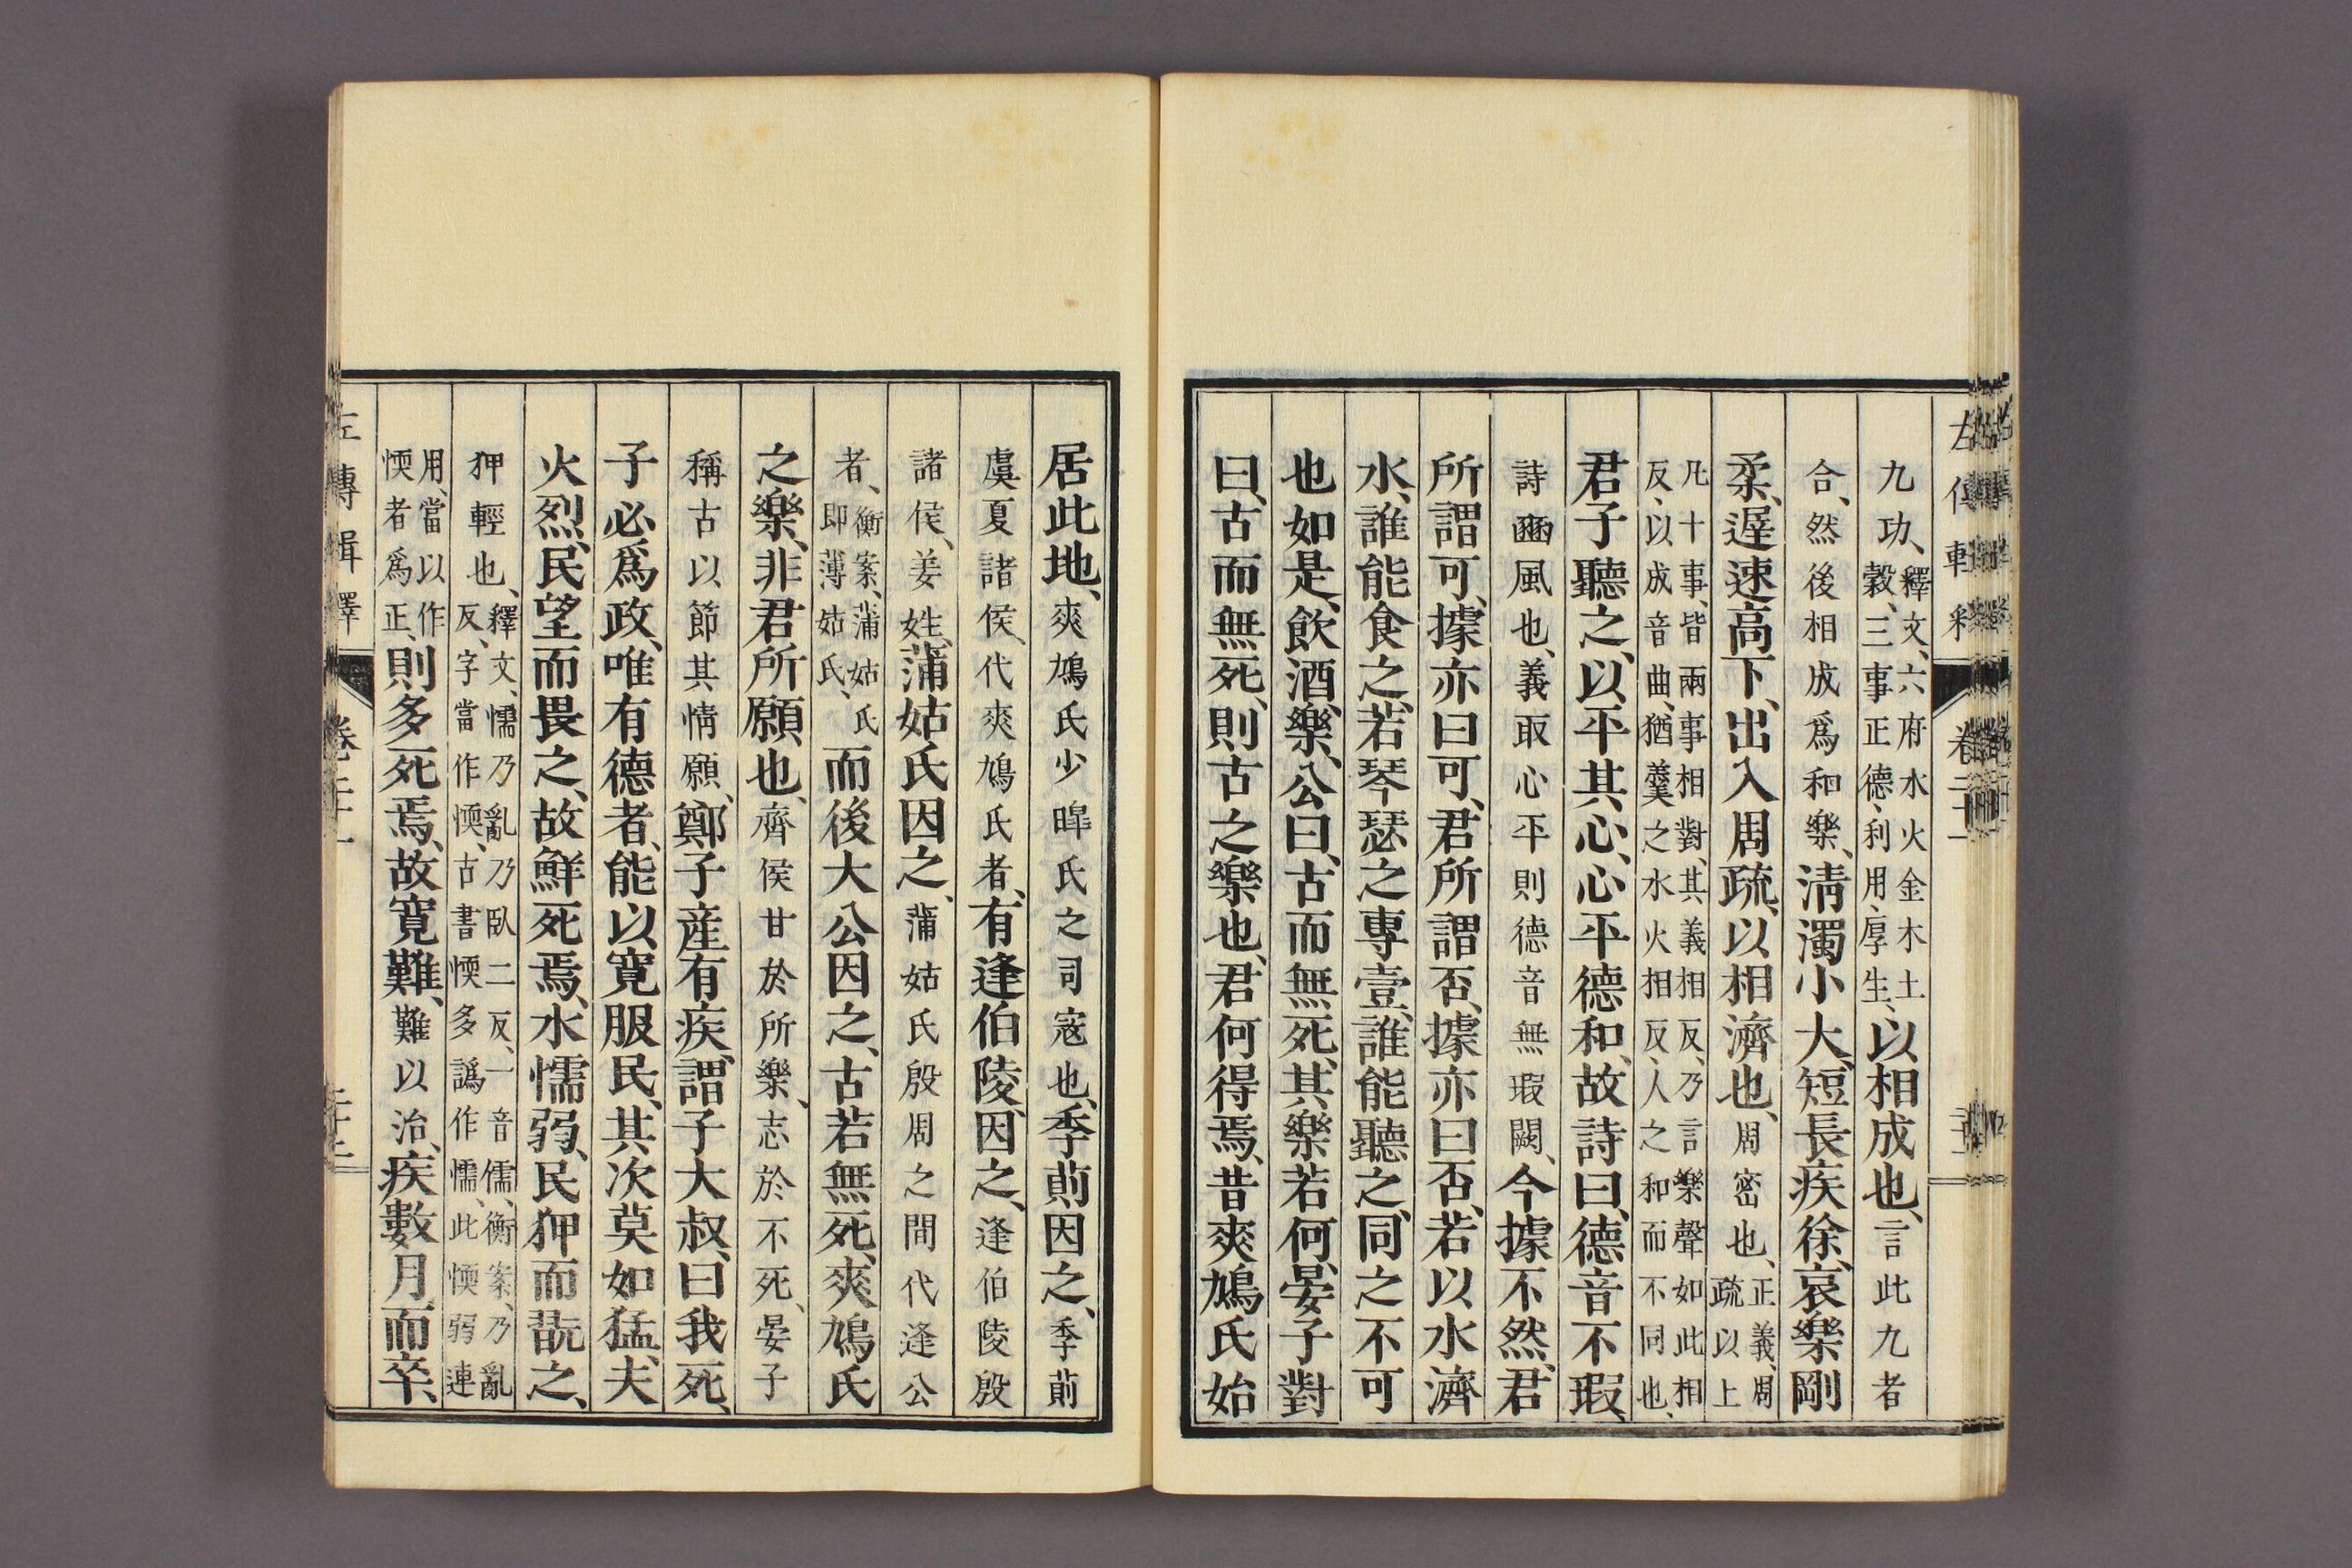 九功、釋文、六府水火金木土穀、三事正德、利用、厚生、以相成也、言此九者
合、然後相成爲和樂、淸濁小大、短長疾徐、哀樂剛
柔、遲速高下、出入周疏、以相濟也、周密也、正義、周疏以上
凡十事、皆兩事相對、其義相反、乃言樂聲如此相反、以成音曲、猶羹之水火相反、人之和而不同也、
君子聽之、以平其心、心平德和、故詩曰、德音不瑕、
詩豳風也、義取心平則德音無瑕闕、今據不然、君
所謂可、據亦曰可、君所謂否、據亦曰否、若以水濟
水、誰能食之、若琴瑟之專壹、誰能聽之、同之不可
也如是、飮酒樂、公曰、古而無死、其樂若何、晏子對
曰、古而無死、則古之樂也、君何得焉、昔爽鳩氏始
居此地、爽鳩氏少皥氏之司寇也、季萴因之、季萴
虞夏諸侯、代爽鳩氏者、有逢伯陵因之、逢伯陵殷
諸侯、姜姓、蒲姑氏因之、蒲姑氏殷周之間代逢公
者、衡案、蒲姑氏即薄姑氏、而後大公因之、古若無死、爽鳩氏
之樂、非君所願也、齊侯甘於所樂、志於不死、晏子
稱古以節其情願、鄭子産有疾、謂子大叔、曰我死、
子必爲政、唯有德者、能以寬服民、其次莫如猛、夫
火烈、民望而畏之、故鮮死焉、水懦弱、民狎而翫之、
狎輕也、釋文、懦乃亂乃臥二反、一音儒、衡案、乃亂反、字當作愞、古書愞多譌作懦、此愞弱連
用、當以作愞者爲正、則多死焉、故寬難、難以治、疾數月而卒、
左傳輯釋 卷二十一